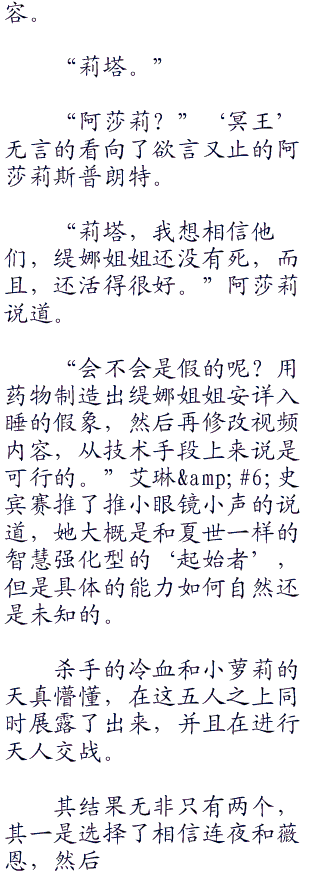 容。
“莉塔。”
“阿莎莉？”‘冥王’
无言的看向了欲言又止的阿
莎莉斯普朗特。
“莉塔，我想相信他
们，缇娜姐姐还没有死，而
且，还活得很好。”阿莎莉
说道。
“会不会是假的呢？用
药物制造出缇娜姐姐安详入
睡的假象，然后再修改视频
内容，从技术手段上来说是
可行的。”艾琳&amp; #6; 史
宾赛推了推小眼镜小声的说
道，她大概是和夏世一样的
智慧强化型的‘起始者’，
但是具体的能力如何自然还
是未知的。
杀手的冷血和小萝莉的
天真懵懂，在这五人之上同
时展露了出来，并且在进行
天人交战。
其结果无非只有两个，
其一是选择了相信连夜和薇
恩，然后